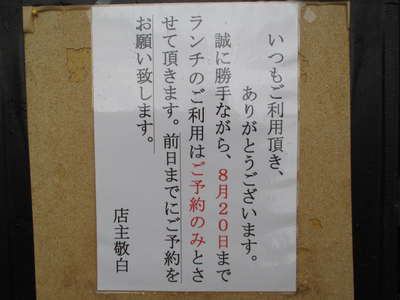 いつもご利用頂き、
ありがとうございます。
誠に勝手ながら、8月20日まで
ランチのご利用はご予約のみとさ
せて頂きます。前日までにご予約を
お願い致します。
店主敬白